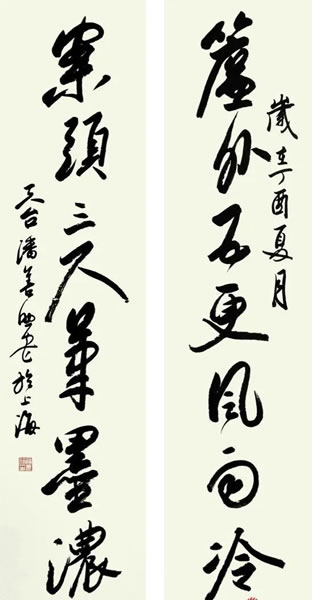 簾外五更風雨冷
歲在丁酉夏月
案頭三尺筆墨濃
天台潘善助書於上海